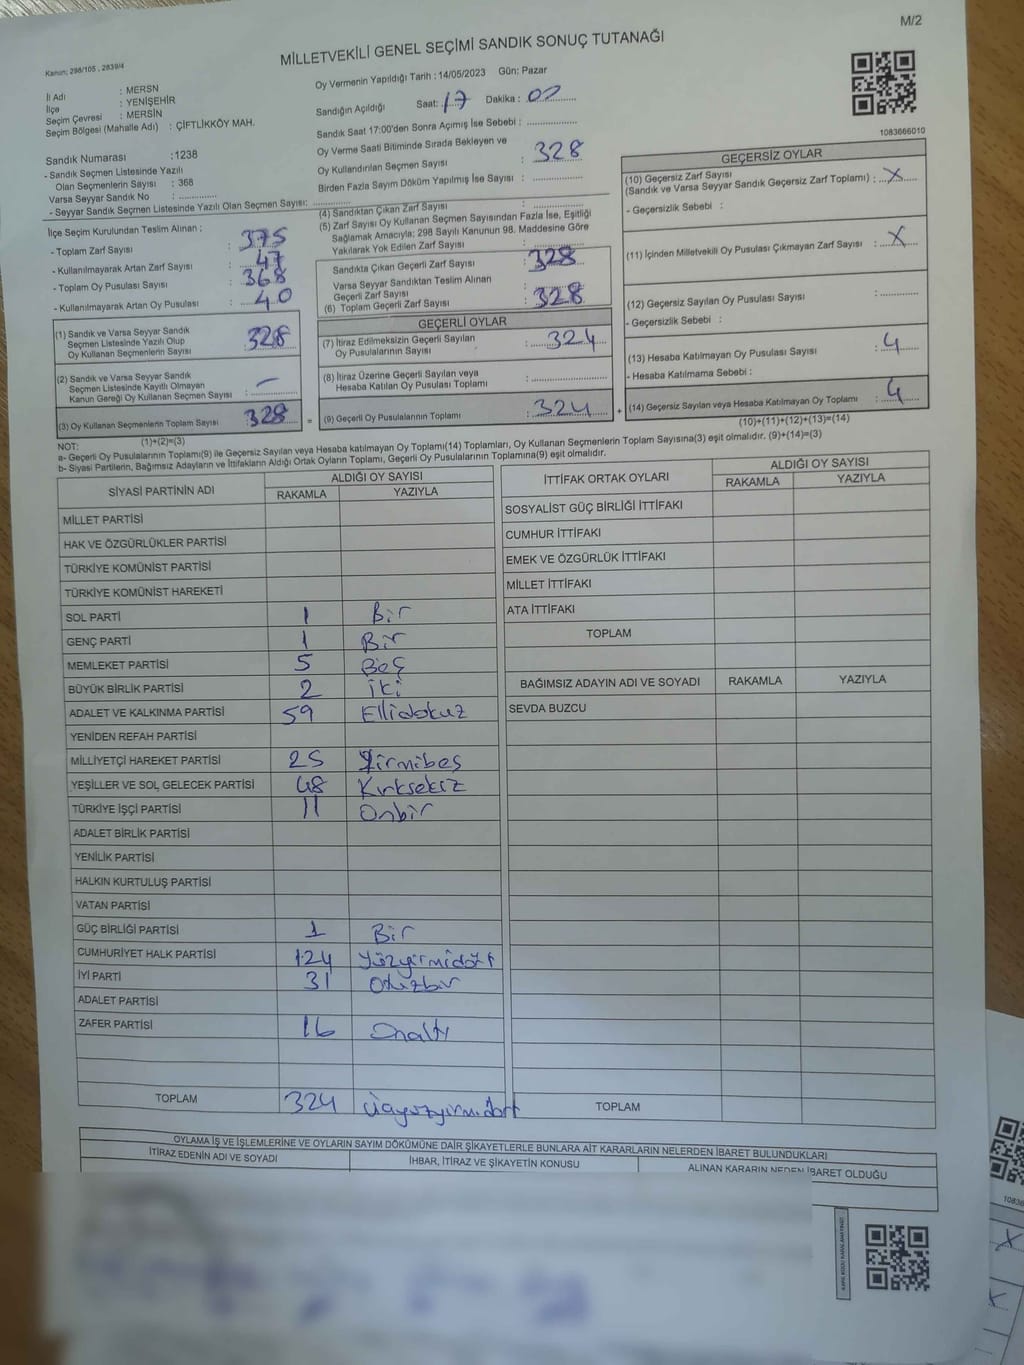 M/2
MİLLETVEKİLİ GENEL SEÇİMİ SANDIK SONUÇ TUTANAĞI
Kanun; 298/105 , 2839/4
İl Adı : MERSN
İlçe : YENİŞEHİR
Seçim Çevresi : MERSİN
Seçim Bölgesi (Mahalle Adı) : ÇİFTLİKKÖY MAH.
Sandık Numarası :1238
- Sandık Seçmen Listesinde Yazılı
Olan Seçmenlerin Sayısı : 368
Varsa Seyyar Sandık No : ..............
- Seyyar Sandık Seçmen Listesinde Yazılı Olan Seçmen Sayısı: ..............
Oy Vermenin Yapıldığı Tarih : 14/05/2023 Gün: Pazar
Sandığın Açıldığı Saat: 17 Dakika : 00
Sandık Saat 17:00'den Sonra Açımış İse Sebebi : ..............
Oy Verme Saati Bitiminde Sırada Bekleyen ve
Oy Kullandırılan Seçmen Sayısı : 328
Birden Fazla Sayım Döküm Yapılmış İse Sayısı : ..............
1083666010
İlçe Seçim Kurulundan Teslim Alınan ;
- Toplam Zarf Sayısı : 375
- Kullanılmayarak Artan Zarf Sayısı : 47
- Toplam Oy Pusulası Sayısı : 368
- Kullanılmayarak Artan Oy Pusulası : 40
(1) Sandık ve Varsa Seyyar Sandık
Seçmen Listesinde Yazılı Olup
Oy Kullanan Seçmenlerin Sayısı : 328
(2) Sandık ve Varsa Seyyar Sandık
Seçmen Listesinde Kayıtlı Olmayan
Kanun Gereği Oy Kullanan Seçmen Sayısı : —
(3) Oy Kullanan Seçmenlerin Toplam Sayısı : 328
(1)+(2)=(3)
(4) Sandıktan Çıkan Zarf Sayısı : ..............
(5) Zarf Sayısı Oy Kullanan Seçmen Sayısından Fazla İse, Eşitliği
Sağlamak Amacıyla; 298 Sayılı Kanunun 98. Maddesine Göre
Yakılarak Yok Edilen Zarf Sayısı : ..............
Sandıkta Çıkan Geçerli Zarf Sayısı : 328
Varsa Seyyar Sandıktan Teslim Alınan
Geçerli Zarf Sayısı : ..............
(6) Toplam Geçerli Zarf Sayısı : 328
GEÇERLİ OYLAR
(7) İtiraz Edilmeksizin Geçerli Sayılan
Oy Pusulalarının Sayısı : 324
(8) İtiraz Üzerine Geçerli Sayılan veya
Hesaba Katılan Oy Pusulası Toplamı : ..............
= (9) Geçerli Oy Pusulalarının Toplamı : 324 +
GEÇERSİZ OYLAR
(10) Geçersiz Zarf Sayısı
(Sandık ve Varsa Seyyar Sandık Geçersiz Zarf Toplamı) : X
- Geçersizlik Sebebi :
(11) İçinden Milletvekili Oy Pusulası Çıkmayan Zarf Sayısı : X
(12) Geçersiz Sayılan Oy Pusulası Sayısı : ..............
- Geçersizlik Sebebi :
(13) Hesaba Katılmayan Oy Pusulası Sayısı : 4
- Hesaba Katılmama Sebebi :
(14) Geçersiz Sayılan veya Hesaba Katılmayan Oy Toplamı : 4
(10)+(11)+(12)+(13)=(14)
NOT:
a- Geçerli Oy Pusulalarının Toplamı(9) ile Geçersiz Sayılan veya Hesaba katılmayan Oy Toplamı(14) Toplamları, Oy Kullanan Seçmenlerin Toplam Sayısına(3) eşit olmalıdır. (9)+(14)=(3)
b- Siyasi Partilerin, Bağımsız Adayların ve İttifakların Aldığı Ortak Oyların Toplamı, Geçerli Oy Pusulalarının Toplamına(9) eşit olmalıdır.
SİYASİ PARTİNİN ADI ALDIĞI OY SAYISI
RAKAMLA YAZIYLA
MİLLET PARTİSİ
HAK VE ÖZGÜRLÜKLER PARTİSİ
TÜRKİYE KOMÜNİST PARTİSİ
TÜRKİYE KOMÜNİST HAREKETİ
SOL PARTİ 1 Bir
GENÇ PARTİ 1 Bir
MEMLEKET PARTİSİ 5 Beş
BÜYÜK BİRLİK PARTİSİ 2 iki
ADALET VE KALKINMA PARTİSİ 59 Ellidokuz
YENİDEN REFAH PARTİSİ
MİLLİYETÇİ HAREKET PARTİSİ 25 Yirmibeş
YEŞİLLER VE SOL GELECEK PARTİSİ 48 Kırksekiz
TÜRKİYE İŞÇİ PARTİSİ 11 Onbir
ADALET BİRLİK PARTİSİ
YENİLİK PARTİSİ
HALKIN KURTULUŞ PARTİSİ
VATAN PARTİSİ
GÜÇ BİRLİĞİ PARTİSİ 1 Bir
CUMHURİYET HALK PARTİSİ 124 Yüzyirmidört
İYİ PARTİ 31 Otuzbir
ADALET PARTİSİ
ZAFER PARTİSİ 16 Onaltı
TOPLAM 324 üçyüzyirmidört
İTTİFAK ORTAK OYLARI ALDIĞI OY SAYISI
RAKAMLA YAZIYLA
SOSYALİST GÜÇ BİRLİĞİ İTTİFAKI
CUMHUR İTTİFAKI
EMEK VE ÖZGÜRLÜK İTTİFAKI
MİLLET İTTİFAKI
ATA İTTİFAKI
TOPLAM
BAĞIMSIZ ADAYIN ADI VE SOYADI RAKAMLA YAZIYLA
SEVDA BUZCU
TOPLAM
OYLAMA İŞ VE İŞLEMLERİNE VE OYLARIN SAYIM DÖKÜMÜNE DAİR ŞİKAYETLERLE BUNLARA AİT KARARLARIN NELERDEN İBARET BULUNDUKLARI
İTİRAZ EDENİN ADI VE SOYADI İHBAR, İTİRAZ VE ŞİKAYETİN KONUSU ALINAN KARARIN NEDEN İBARET OLDUĞU